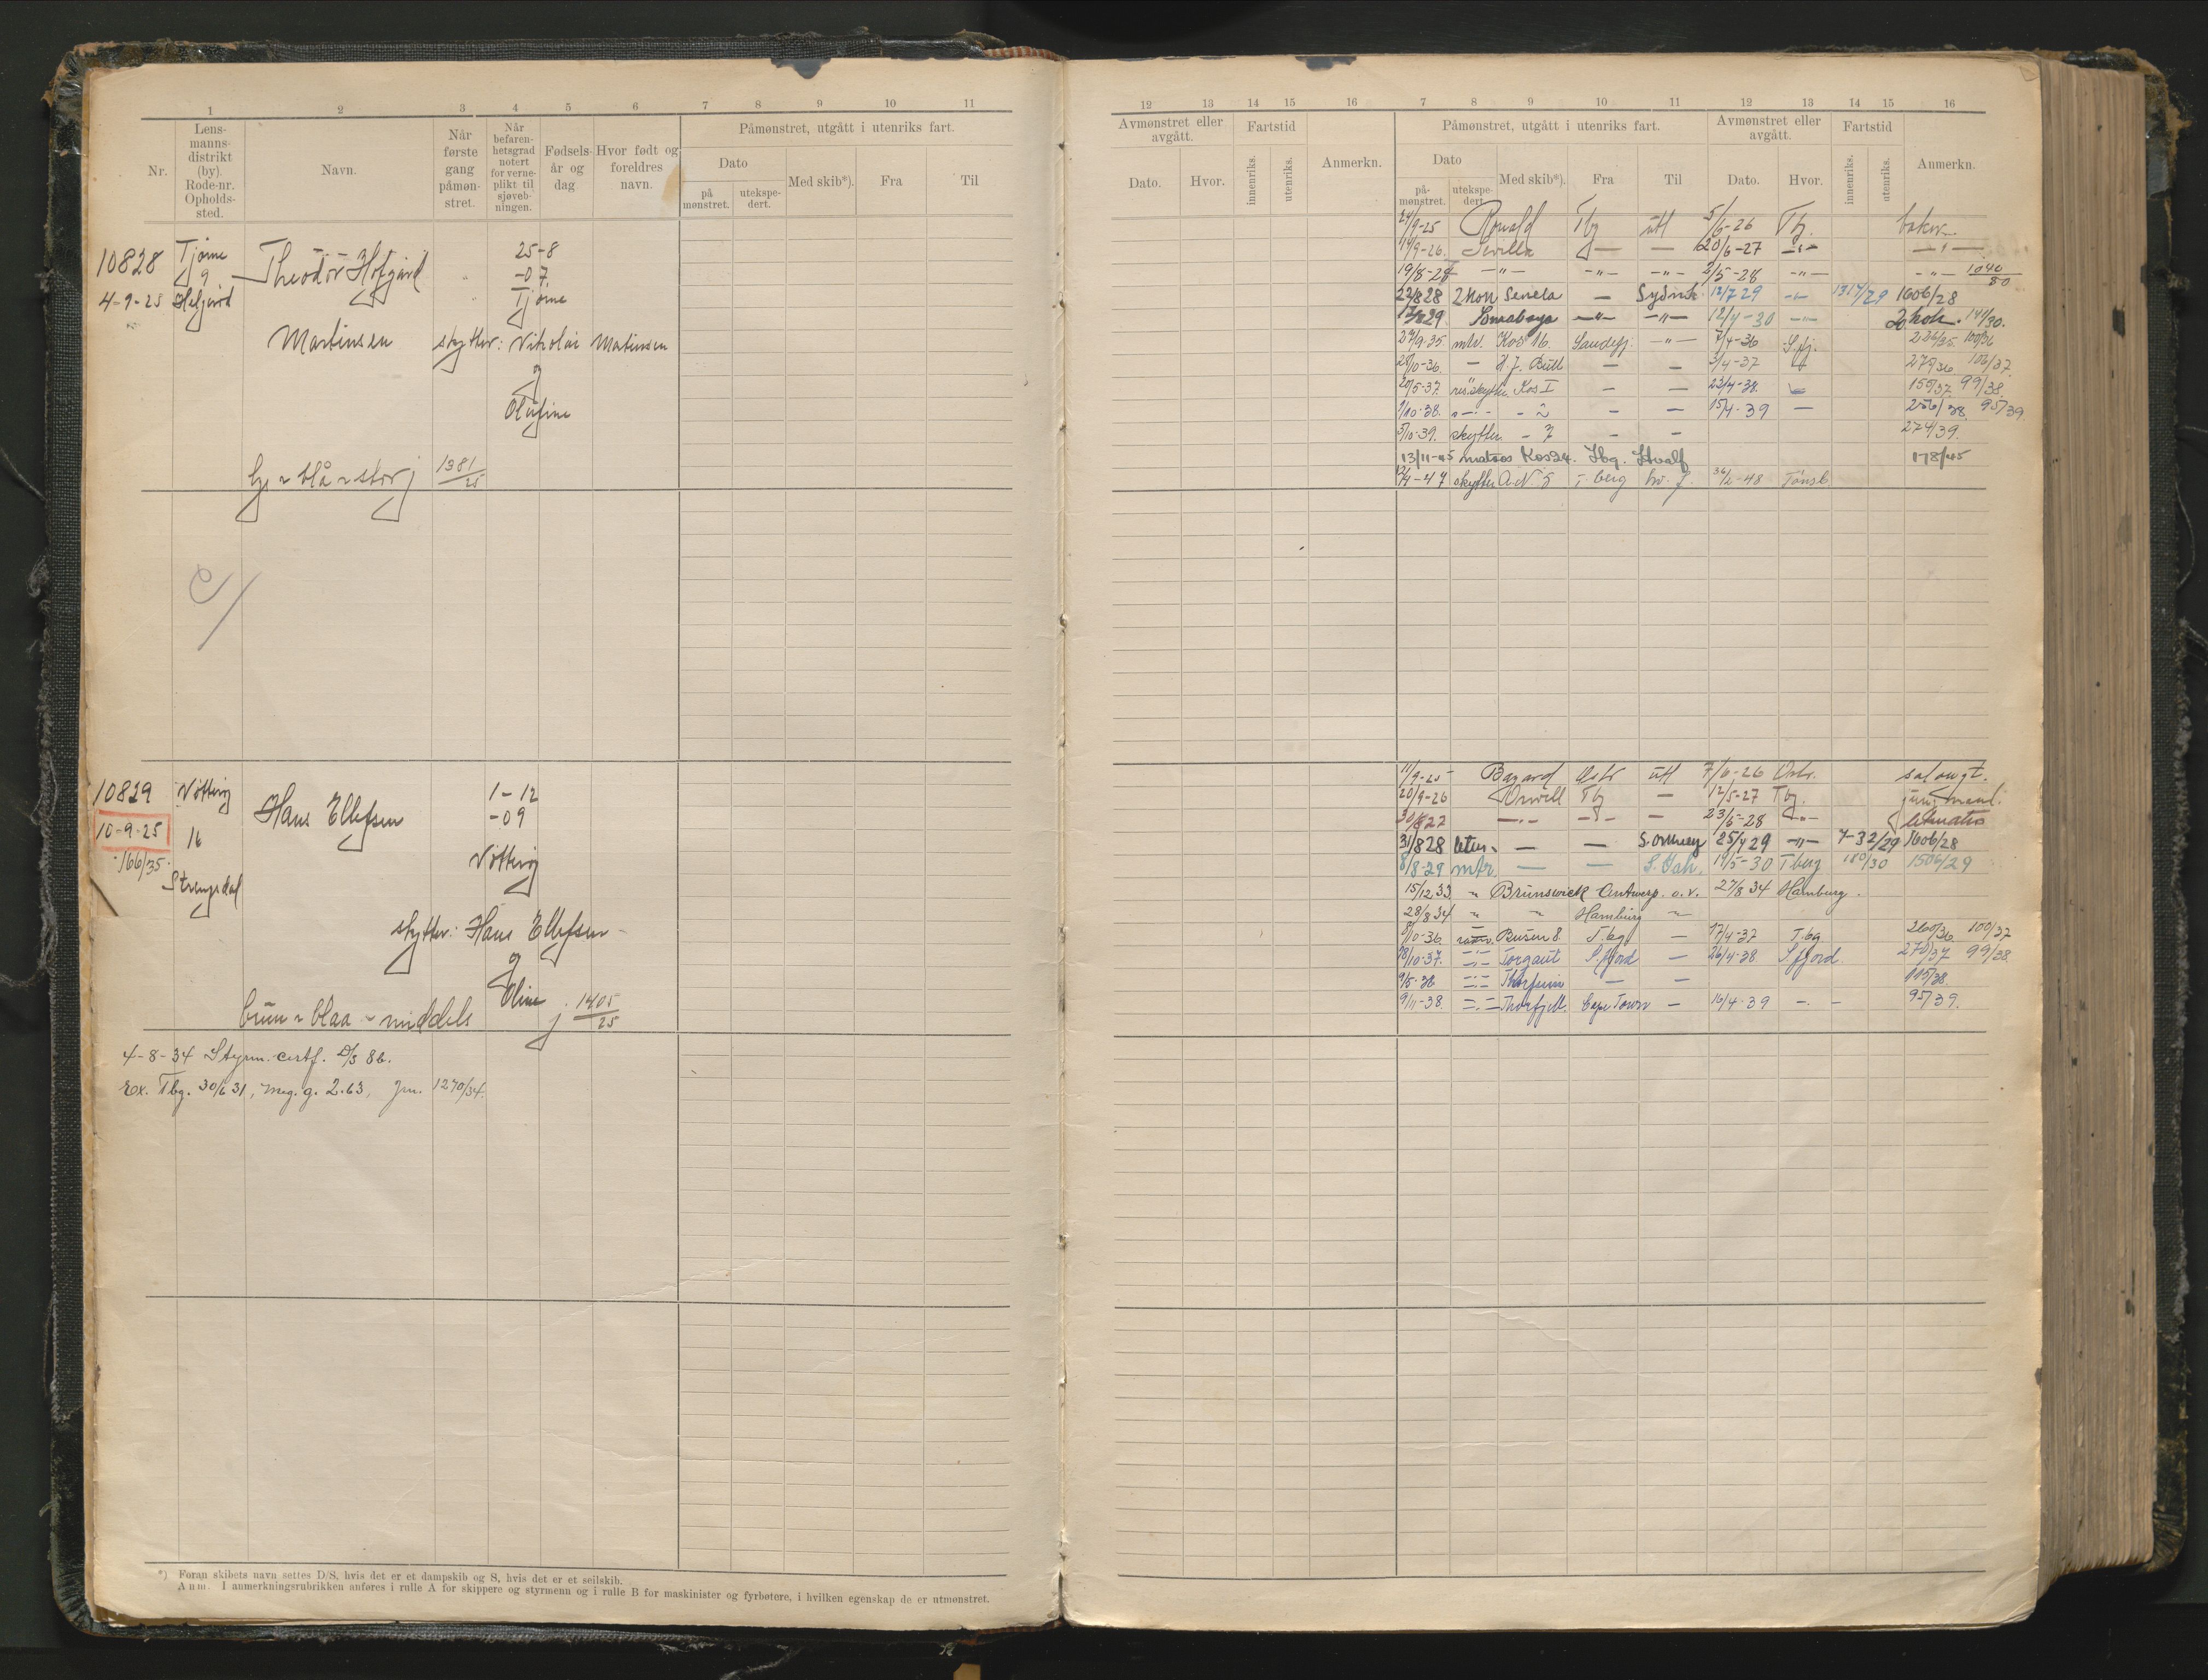 1 2 3 4 5 6 7 8 9 10 11
Nr.
Lens-
manns-
distrikt
(by).
Rode-nr.
Opholds-
sted.
Navn.
Når
første
gang
påmøn-
stret.
Når
befaren-
hetsgrad
notert
for verne-
plikt til
sjøveb-
ningen.
Fødsels-
år og
dag
Hvor født og
foreldres
navn.
Påmønstret, utgått i utenriks fart.
Dato
på
mønstret.
utekspe-
dert.
Med skib*).
Fra
Til
10828 Tjøme
9
4-9-25
Theodor Hofgård
Martinsen
25-8
-07
Tjøme
Nikolai Martinsen
og
Olufine
lys " blå " stor
1381/25
10829 Nøtterøy
10-9-25 16
166/35
Strengsdal
Hans Ellefsen
1-12
-09
Nøtterøy
Hans Ellefsen
og
Oline
brun " blaa " middels
1405/25
4-8-34 Styrm. certf. D/S 86.
Ex. Tbg. 30/6 31, meg. g. 2.63, Jrn. 1270/34.
*) Foran skibets navn settes D/S, hvis det er et dampskib og S, hvis det er et seilskib.
Anm. I anmerkningsrubrikken anføres i rulle A for skippere og styrmenn og i rulle B for maskinister og fyrbøtere, i hvilken egenskap de er utmønstret.
12 13 14 15 16 7 8 9 10 11 12 13 14 15 16
Avmønstret eller
avgått.
Dato.
Hvor.
Fartstid
innenriks.
utenriks.
Anmerkn.
Påmønstret, utgått i utenriks fart.
Dato
på-
mønstret.
utekspe-
dert
Med skib*).
Fra
Til
Avmønstret eller
avgått.
Dato.
Hvor.
Fartstid
innenriks.
utenriks.
Anmerkn.
24/9-25 Ronald Tbg utl 5/6-26 Tbg.
14/9-26. Sevilla — — 20/6-27 -"-
19/8-27 -"- -"- -"- 2/5-28 -"- -"- 1040/80
22/8 28 2 kok Senela — 12/7 29 -"- 1317/29 1606/28
17/8 29. Sourabaya -"- -"- 12/4-30 -"- 2 kok. 141/30.
27/9-35. Kos 16. Sandefj. -"- 7/4-36 S.fj. 236/35. 100/36
20/10-36. — H.J. Bull — — 3/4-37 279/36 106/37.
20/5-37. Kos I — — 23/4-38. 155/37. 99/38.
1/10-38. — — 15/4-39 — 256/38 95/39.
5/10-39. skytter - 7 — — 274/39.
13/11-45 matros Kos 24. Hvalf 178/45
12/4-47 skytter T.berg hv. f. Tønsb.
11/9-25 Bagard utl 7/6-26
20/9-26 Orwell Tbg — 12/5-27 Tbg.
30/8 27 -"- -"- — 23/5-28 -"-
31/8 28 — — S. Orkney 25/4 29 -"- 7-32/29 1606/28
8/8-29 mtr. — — 14/5-30 T berg 180/30 1506/29
15/12 33 " Brunswick Antwerp. o.v. 27/8 34 Hamburg.
28/8 34 " " Hamburg "
8/10-36. Busen 8. T.bg — 17/4-37 T.bg 260/36 100/37
18/10-37. -"- Torgaut S.fjord — 26/4-38 S.fjord 270/37 99/38.
9/5-38 -"- Thorfinn — — 115/38.
9/11-38. -"- Thorfjell. Cape Town — 16/4-39 -"- 95/39.